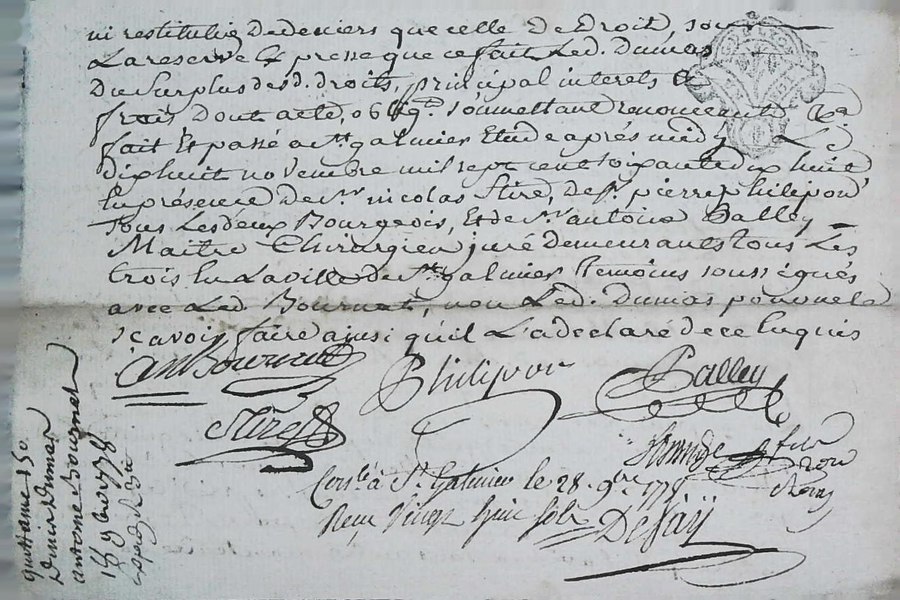 ni restitution de deniers que celle de droit, sous
La reserve Expresse que ce fait Led. Dumas
Du surplus desd. droits, principal interets Et
frais dont acte, obligé soumettant renonceant
fait Et passé a st. galmier Etude apres midy Le
dixhuit novembre mil sept cent soixante dix huit
En présence de sr. nicolas Stire, de sr. pierre philipon
Tous Les deux Bourgeois, Et de sr. antoine Balley
Maitre Chirurgien juré demeurants tous Les
trois En La ville de st. galmier temoins soussignés
avec Led. Bournat, non Led. Dumas pour ne le
sçavoir faire ainsi qu'il L'a declaré de ce Enquis
Bournat
Philipon
Balley
Stire
Con.lé à St Galmier le 28. 9bre 1778
Reçu Vingt huit sols
Defay
quittance 150
Denis dumas
antoine Bournat
18 9bre 1778